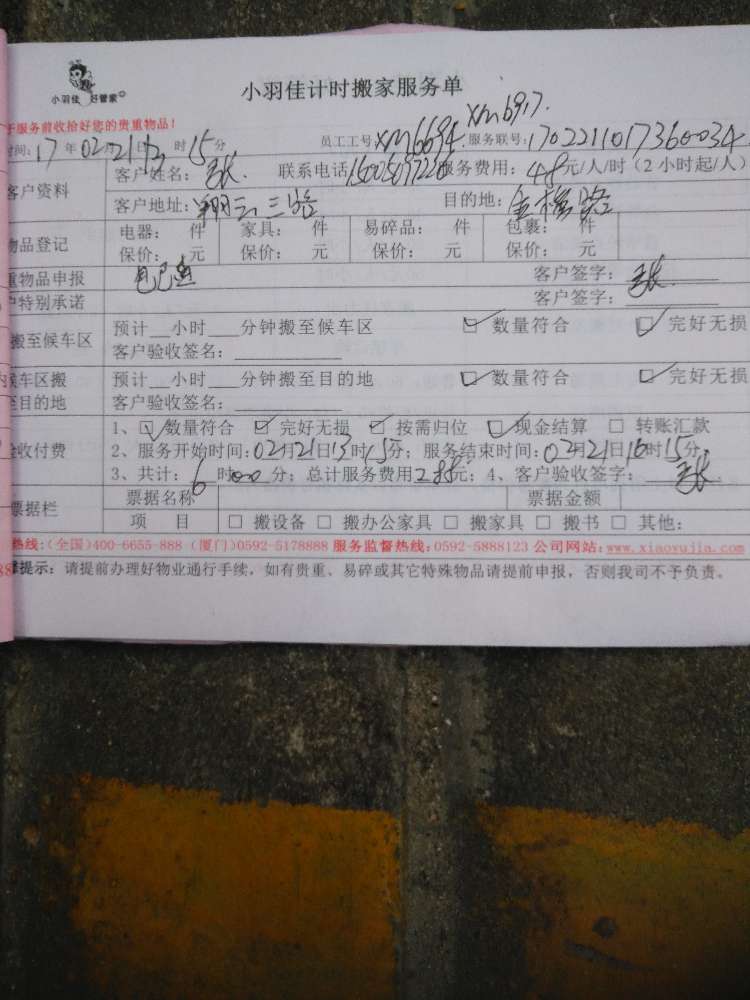 小羽佳 好管家
小羽佳计时搬家服务单
于服务前收拾好您的贵重物品！
时间：17年02月21日13时15分 员工工号：xm6694 xm6917. 服务联号：1702211017360034
客户资料 客户姓名： 联系电话 服务费用：48元/人/时（2小时起/人）
客户地址：翔云三路 目的地：金横路
物品登记 电器： 件 家具： 件 易碎品： 件 包裹： 件
保价： 元 保价： 元 保价： 元 保价： 元
重物品申报 客户签字：
户特别承诺 客户签字：
搬至候车区 预计__小时___分钟搬至候车区 ☑ 数量符合 ☑ 完好无损
客户验收签名：
内候车区搬 预计__小时___分钟搬至目的地 ☑ 数量符合 ☑ 完好无损
至目的地 客户验收签名：
验收付费 1、☑ 数量符合 ☑ 完好无损 ☑ 按需归位 ☑ 现金结算 □ 转账汇款
2、服务开始时间：02月21日13时15分；服务结束时间：02月21日16时15分
3、共计：6时00分；总计服务费用288元；4、客户验收签字：
票据栏 票据名称 票据金额
项 目 □ 搬设备 □ 搬办公家具 □ 搬家具 □ 搬书 □ 其他：
热线：（全国）400-6655-888（厦门）0592-5178888 服务监督热线：0592-5888123 公司网站：www.xiaoyujia.com
提示：请提前办理好物业通行手续，如有贵重、易碎或其它特殊物品请提前申报，否则我司不予负责。